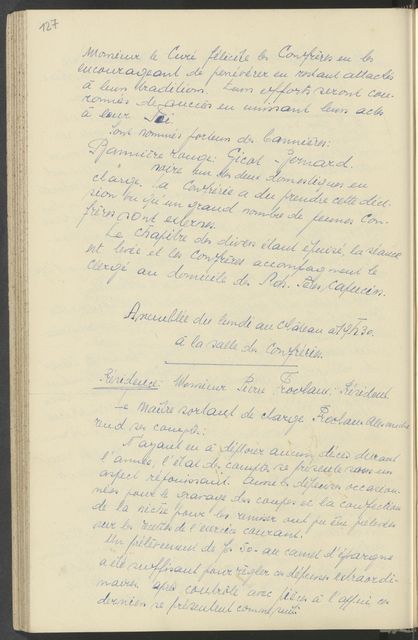 127
Monsieur le Curé félicite les Confrères en les
encourageant de persévérer en restant attachés
à leurs traditions. Leurs efforts seront cou-
ronnés de succès en unissant leurs actes
à leur Foi.
Sont nommés porteurs des bannières:
Bannière rouge: Gicot - Jernard.
" noire un des deux domestiques en
charge. La Confrérie a du prendre cette déci-
sion vu qu'un grand nombre de jeunes Con-
frères sont externes.
Le chapitre des divers étant épuisé, la séance
est levée et les Confrères accompagnent le
Clergé au domicile des Rds. Pères Capucins.
Assemblée du lundi au Château
à la salle des Confrères.
Présidence: Monsieur Pierre Frochaux: Président.
Le maître sortant de charge Frochaux Alexandre
rend ses comptes:
N'ayant eu à déplorer aucun décès durant
l'année, l'état des comptes se présente sous un
aspect réjouissant. Aussi les dépenses occasion-
nées pour le gravage des coupes et la confection
de la niche pour les remiser ont pu être prélevées
sur les recettes de l'exercice courant.
Un prélèvement de fr. 50.- au carnet d'épargne
a été suffisant pour régler ces dépenses extraordi-
naires. Après contrôle avec pièces à l'appui ces
derniers se présentent comme suit: